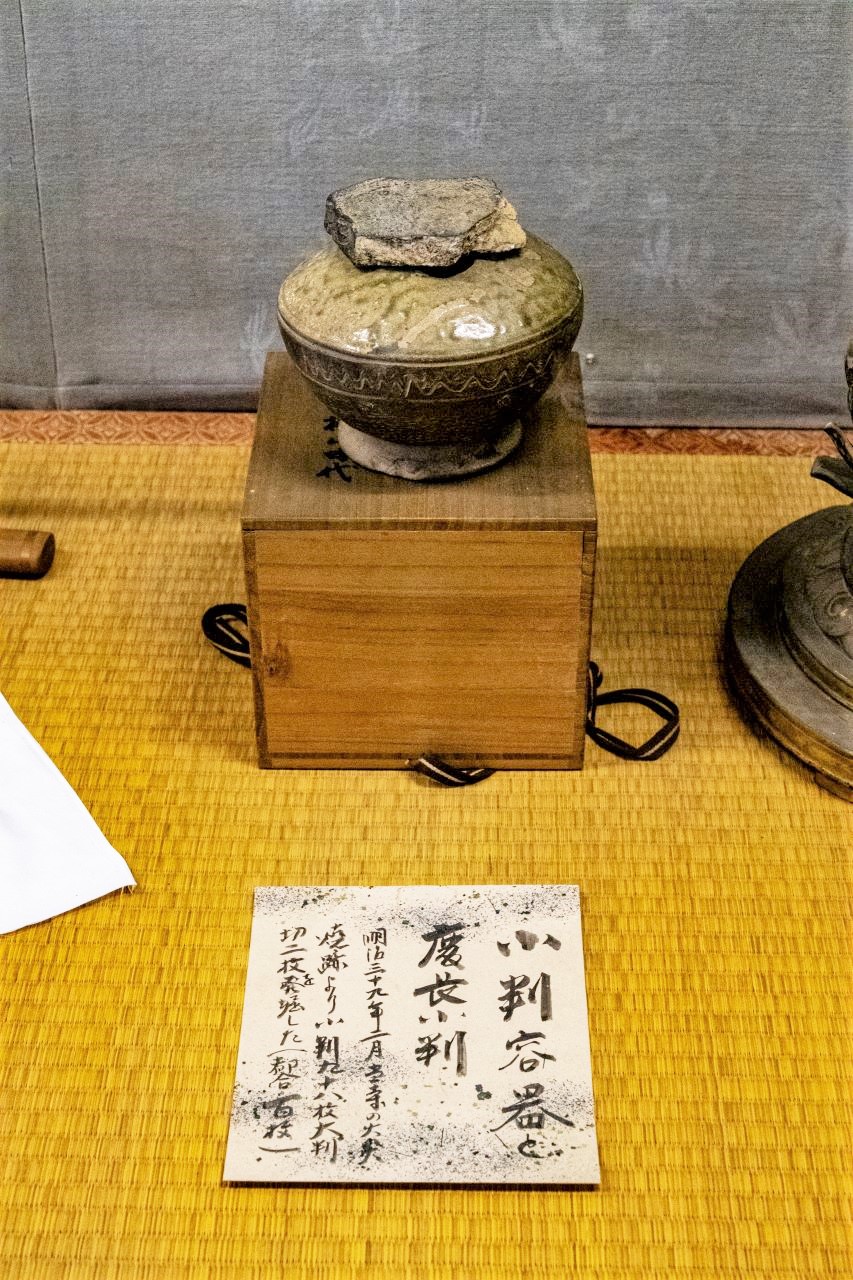 小判容器と
慶長小判
明治三十九年二月当寺の大火
焼跡より小判九十八枚大判
切二枚を発掘した(都合百枚)